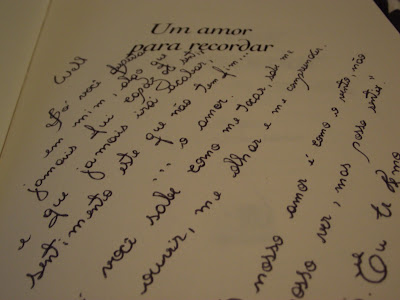 Um amor
para recordar
Só você
em mim algo que
jamais fui capaz de sentir
e que jamais irá acabar,
sentimento este que não tem fim...
... o amor.
você sabe como me tocar, sabe me
ouvir, me olhar e me compreender.
nosso amor é como o vento, não
posso ver, mas posso sentir"
Eu te amo